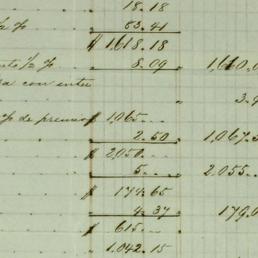 18.18
% % 83.41
$ 1,618.18
½ % 8.09 1,660.
con
3.
% de premio $ 1,065...
2.50 1,067.5
$ 2,050...
5... 2,055...
$ 174.65
4.37 179.0
$ 615...
1.042.15